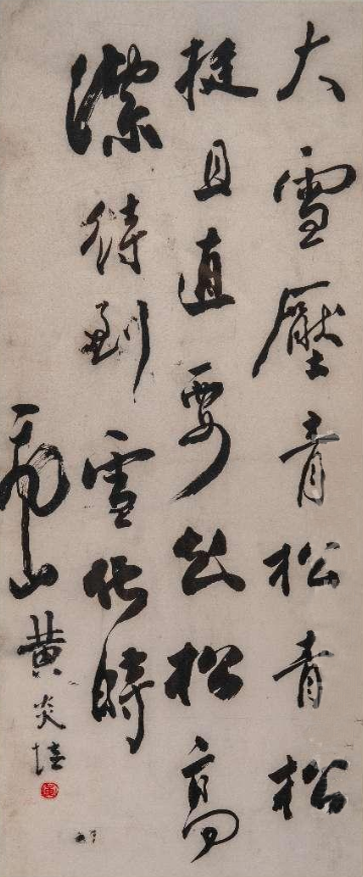 大雪壓青松青松
挺且直要知松高
潔待到雪化時
黄炎培